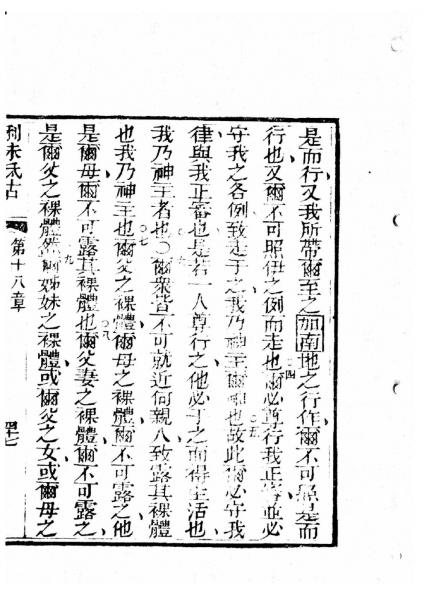 是而行又我所帶爾至之加南地之行作爾不可照是而
行也又爾不可照伊之例而走也四爾必尊行我正審並必
守我之各例致走于之我乃神主爾神也五故此爾必守我
律與我正審也是若一人尊行之他必于之而得生活也
我乃神主者也〇六爾眾皆不可就近何親人致露其裸體
也我乃神主也七爾父之裸體爾母之裸體爾不可露之他
是爾母爾不可露其裸體也八爾父妻之裸體爾不可露之
是爾父之裸體然九爾姊妹之裸體或爾父之女或爾母之
利未氏古
第十八章
四十七